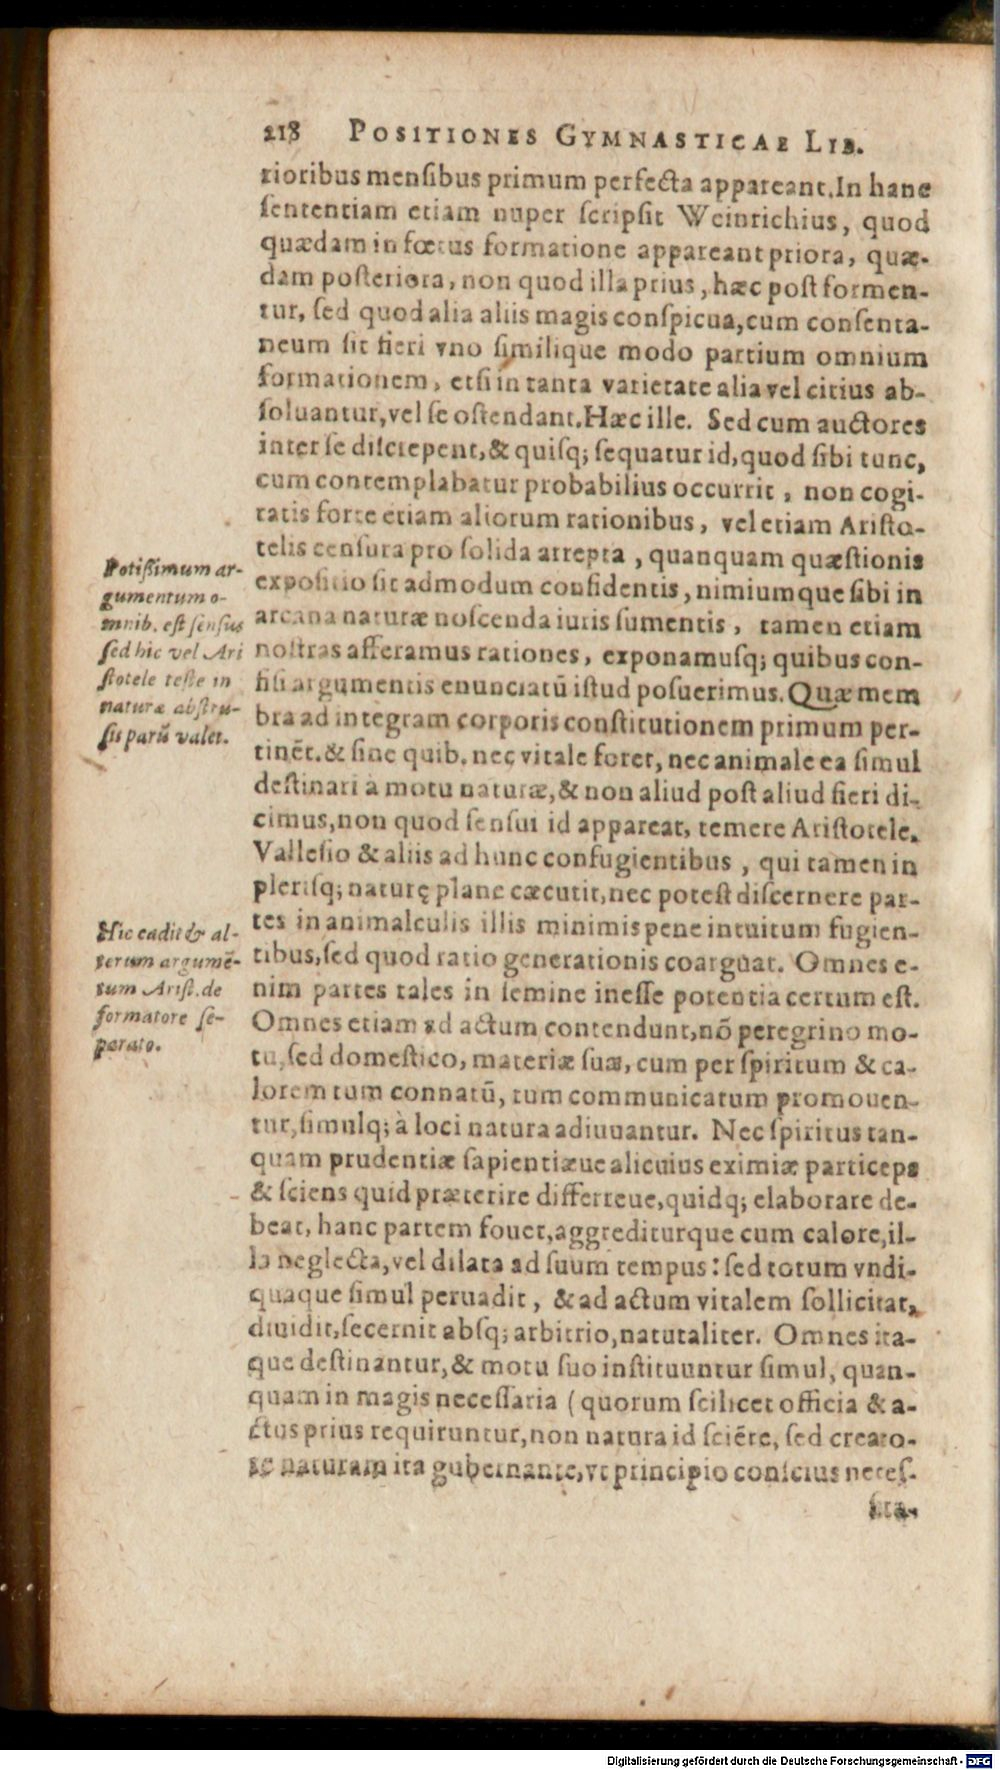 218 POSITIONES GYMNASTICAE LIB.
rioribus mensibus primum perfecta appareant. In hanc
sententiam etiam nuper scripsit Weinrichius, quod
quædam in fœtus formatione appareant priora, quæ-
dam posteriora, non quod illa prius, hæc post formen-
tur, sed quod alia aliis magis conspicua, cum consenta-
neum sit fieri vno similique modo partium omnium
formationem, etsi in tanta varietate alia vel citius ab-
soluantur, vel se ostendant. Hæc ille. Sed cum auctores
inter se discrepent, & quisq; sequatur id, quod sibi tunc,
cum contemplabatur probabilius occurrit, non cogi-
tatis forte etiam aliorum rationibus, vel etiam Aristo-
telis censura pro solida arrepta, quanquam quæstionis
expositio sit admodum confidentis, nimiumque sibi in
arcana naturæ noscenda iuris sumentis, tamen etiam
nostras afferamus rationes, exponamusq; quibus con-
fisi argumentis enunciatū istud posuerimus. Quæ mem
bra ad integram corporis constitutionem primum per-
tinēt. & sine quib. nec vitale foret, nec animale ea simul
destinari à motu naturæ, & non aliud post aliud fieri di-
cimus, non quod sensui id appareat, temere Aristotele,
Vallesio & aliis ad hunc confugientibus, qui tamen in
plerisq; naturę plane cæcutit, nec potest discernere par-
tes in animalculis illis minimis pene intuitum fugien-
tibus, sed quod ratio generationis coarguat. Omnes e-
nim partes tales in semine inesse potentia certum est.
Omnes etiam ad actum contendunt, nō peregrino mo-
tu, sed domestico, materiæ suæ, cum per spiritum & ca-
lorem tum connatū, tum communicatum promouen-
tur, simulq; à loci natura adiuuantur. Nec spiritus tan-
quam prudentiæ sapientiæue alicuius eximiæ particeps
& sciens quid præterire differreue, quidq; elaborare de-
beat, hanc partem fouet, aggrediturque cum calore, il-
la neglecta, vel dilata ad suum tempus: sed totum vndi-
quaque simul peruadit, & ad actum vitalem sollicitat,
diuidit, secernit absq; arbitrio, naturaliter. Omnes ita-
que destinantur, & motu suo instituuntur simul, quan-
quam in magis necessaria (quorum scilicet officia & a-
ctus prius requiruntur, non natura id sciēte, sed creato-
re naturam ita gubernante, vt principio conscius neces-
sita-
Potissimum ar-
gumentum o-
mnib. est sensus
sed hic vel Ari
stotele teste in
naturæ abstru-
sis parū valet.
Hic cadit & al-
terum argumē-
tum Arist. de
formatore se-
parato.
Digitalisierung gefördert durch die Deutsche Forschungsgemeinschaft - DFG